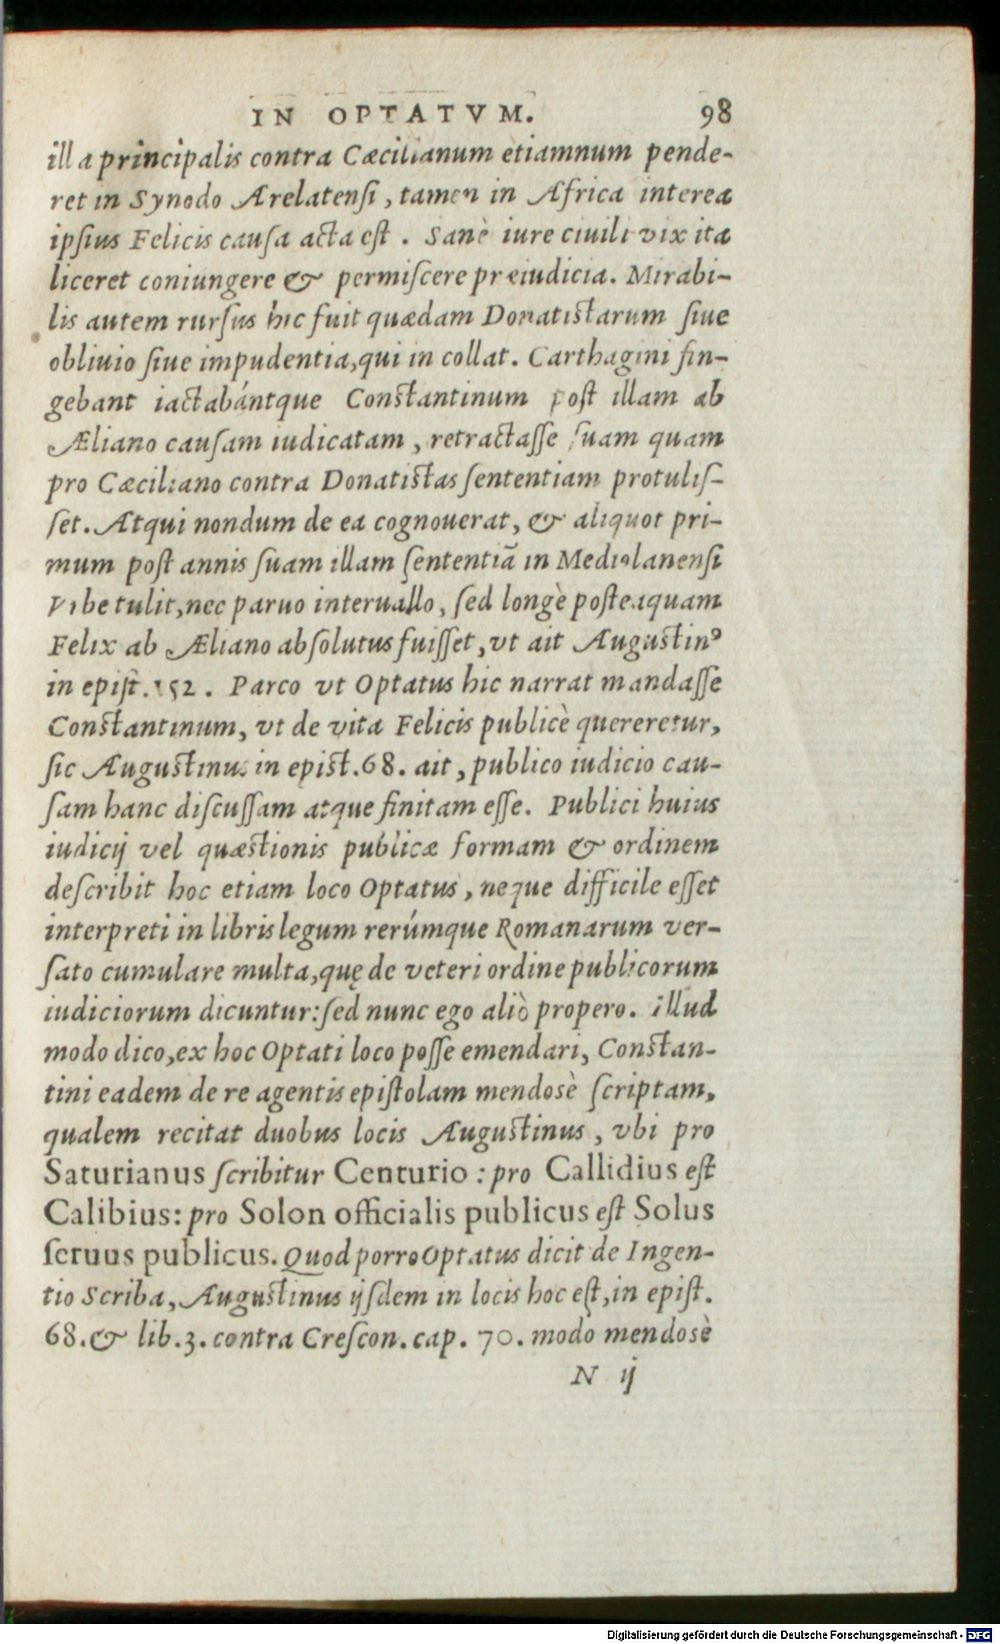 IN OPTATVM. 98
illa principalis contra Cæcilianum etiamnum pende-
ret in Synodo Arelatenſi, tamen in Africa interea
ipſius Felicis cauſa acta eſt. Sanè iure ciuili vix ita
liceret coniungere & permiſcere præiudicia. Mirabi-
lis autem rurſus hic fuit quædam Donatiſtarum ſiue
obliuio ſiue impudentia, qui in collat. Carthagini fin-
gebant iactabántque Conſtantinum poſt illam ab
Æliano cauſam iudicatam, retractaſſe ſuam quam
pro Cæciliano contra Donatiſtas ſententiam protuliſ-
ſet. Atqui nondum de ea cognouerat, & aliquot pri-
mum poſt annis ſuam illam ſententiā in Mediolanenſi
Vrbe tulit, nec paruo interuallo, ſed longè poſteaquam
Felix ab Æliano abſolutus fuiſſet, vt ait Auguſtinꝰ
in epiſt. 152. Parco vt Optatus hic narrat mandaſſe
Conſtantinum, vt de vita Felicis publicè quereretur,
ſic Auguſtinus in epiſt. 68. ait, publico iudicio cau-
ſam hanc diſcuſſam atque finitam eſſe. Publici huius
iudicij vel quæſtionis publicæ formam & ordinem
deſcribit hoc etiam loco Optatus, neque difficile eſſet
interpreti in libris legum rerúmque Romanarum ver-
ſato cumulare multa, quę de veteri ordine publicorum
iudiciorum dicuntur: ſed nunc ego aliò propero. illud
modo dico, ex hoc Optati loco poſſe emendari, Conſtan-
tini eadem de re agentis epiſtolam mendosè ſcriptam,
qualem recitat duobus locis Auguſtinus, vbi pro
Saturianus ſcribitur Centurio: pro Callidius eſt
Calibius: pro Solon officialis publicus eſt Solus
ſeruus publicus. Quod porro Optatus dicit de Ingen-
tio Scriba, Auguſtinus ijſdem in locis hoc eſt, in epiſt.
68. & lib. 3. contra Creſcon. cap. 70. modo mendosè
N ij
Digitalisierung gefördert durch die Deutsche Forschungsgemeinschaft - DFG